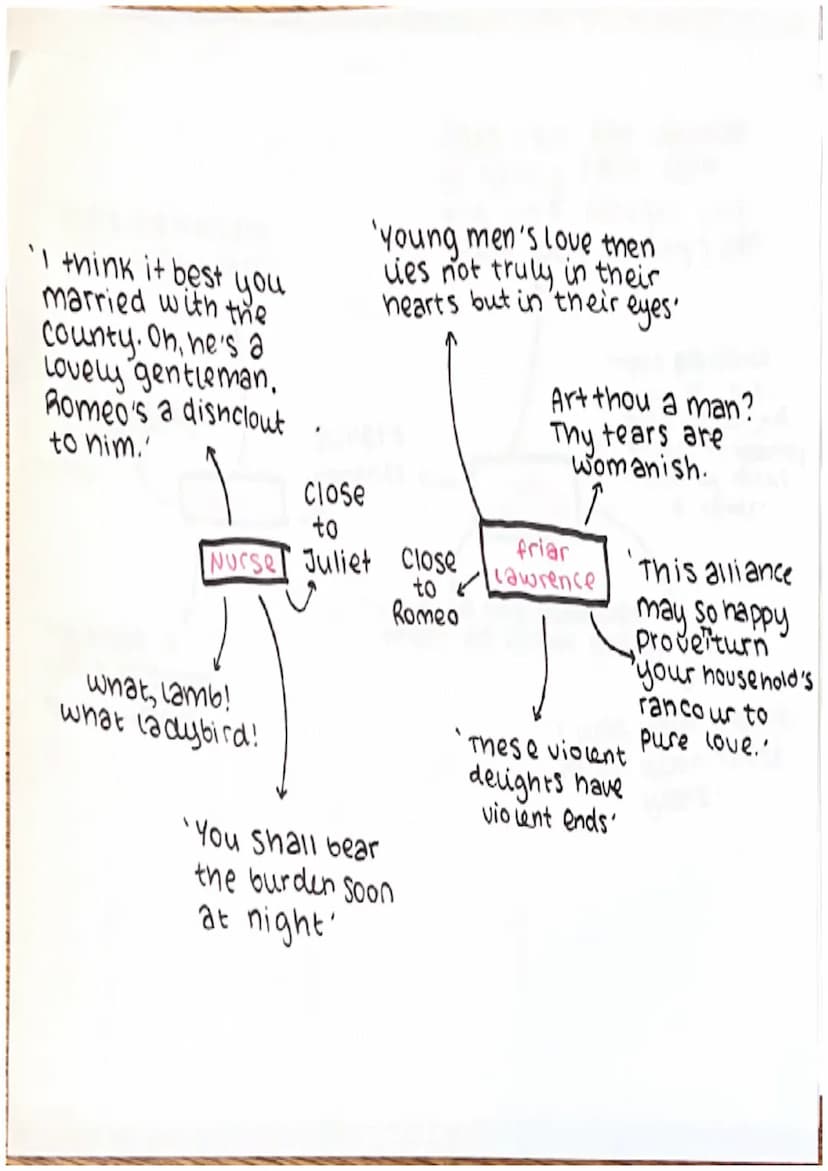 'I think it best you
married with the
county. Oh, he's a
lovely gentleman.
Romeo's a dishclout
to him.'
close
to
Juliet
Nurse
what, lamb!
what ladybird!
'You shall bear
the burden soon
at night'
'young men's love then
lies not truly in their
hearts but in their eyes'
Art thou a man?
Thy tears are
womanish.
friar
Lawrence
Close
to
Romeo
'This alliance
may so happy
prove turn
your household's
rancour to
pure love.'
'These violent
delights have
violent ends'